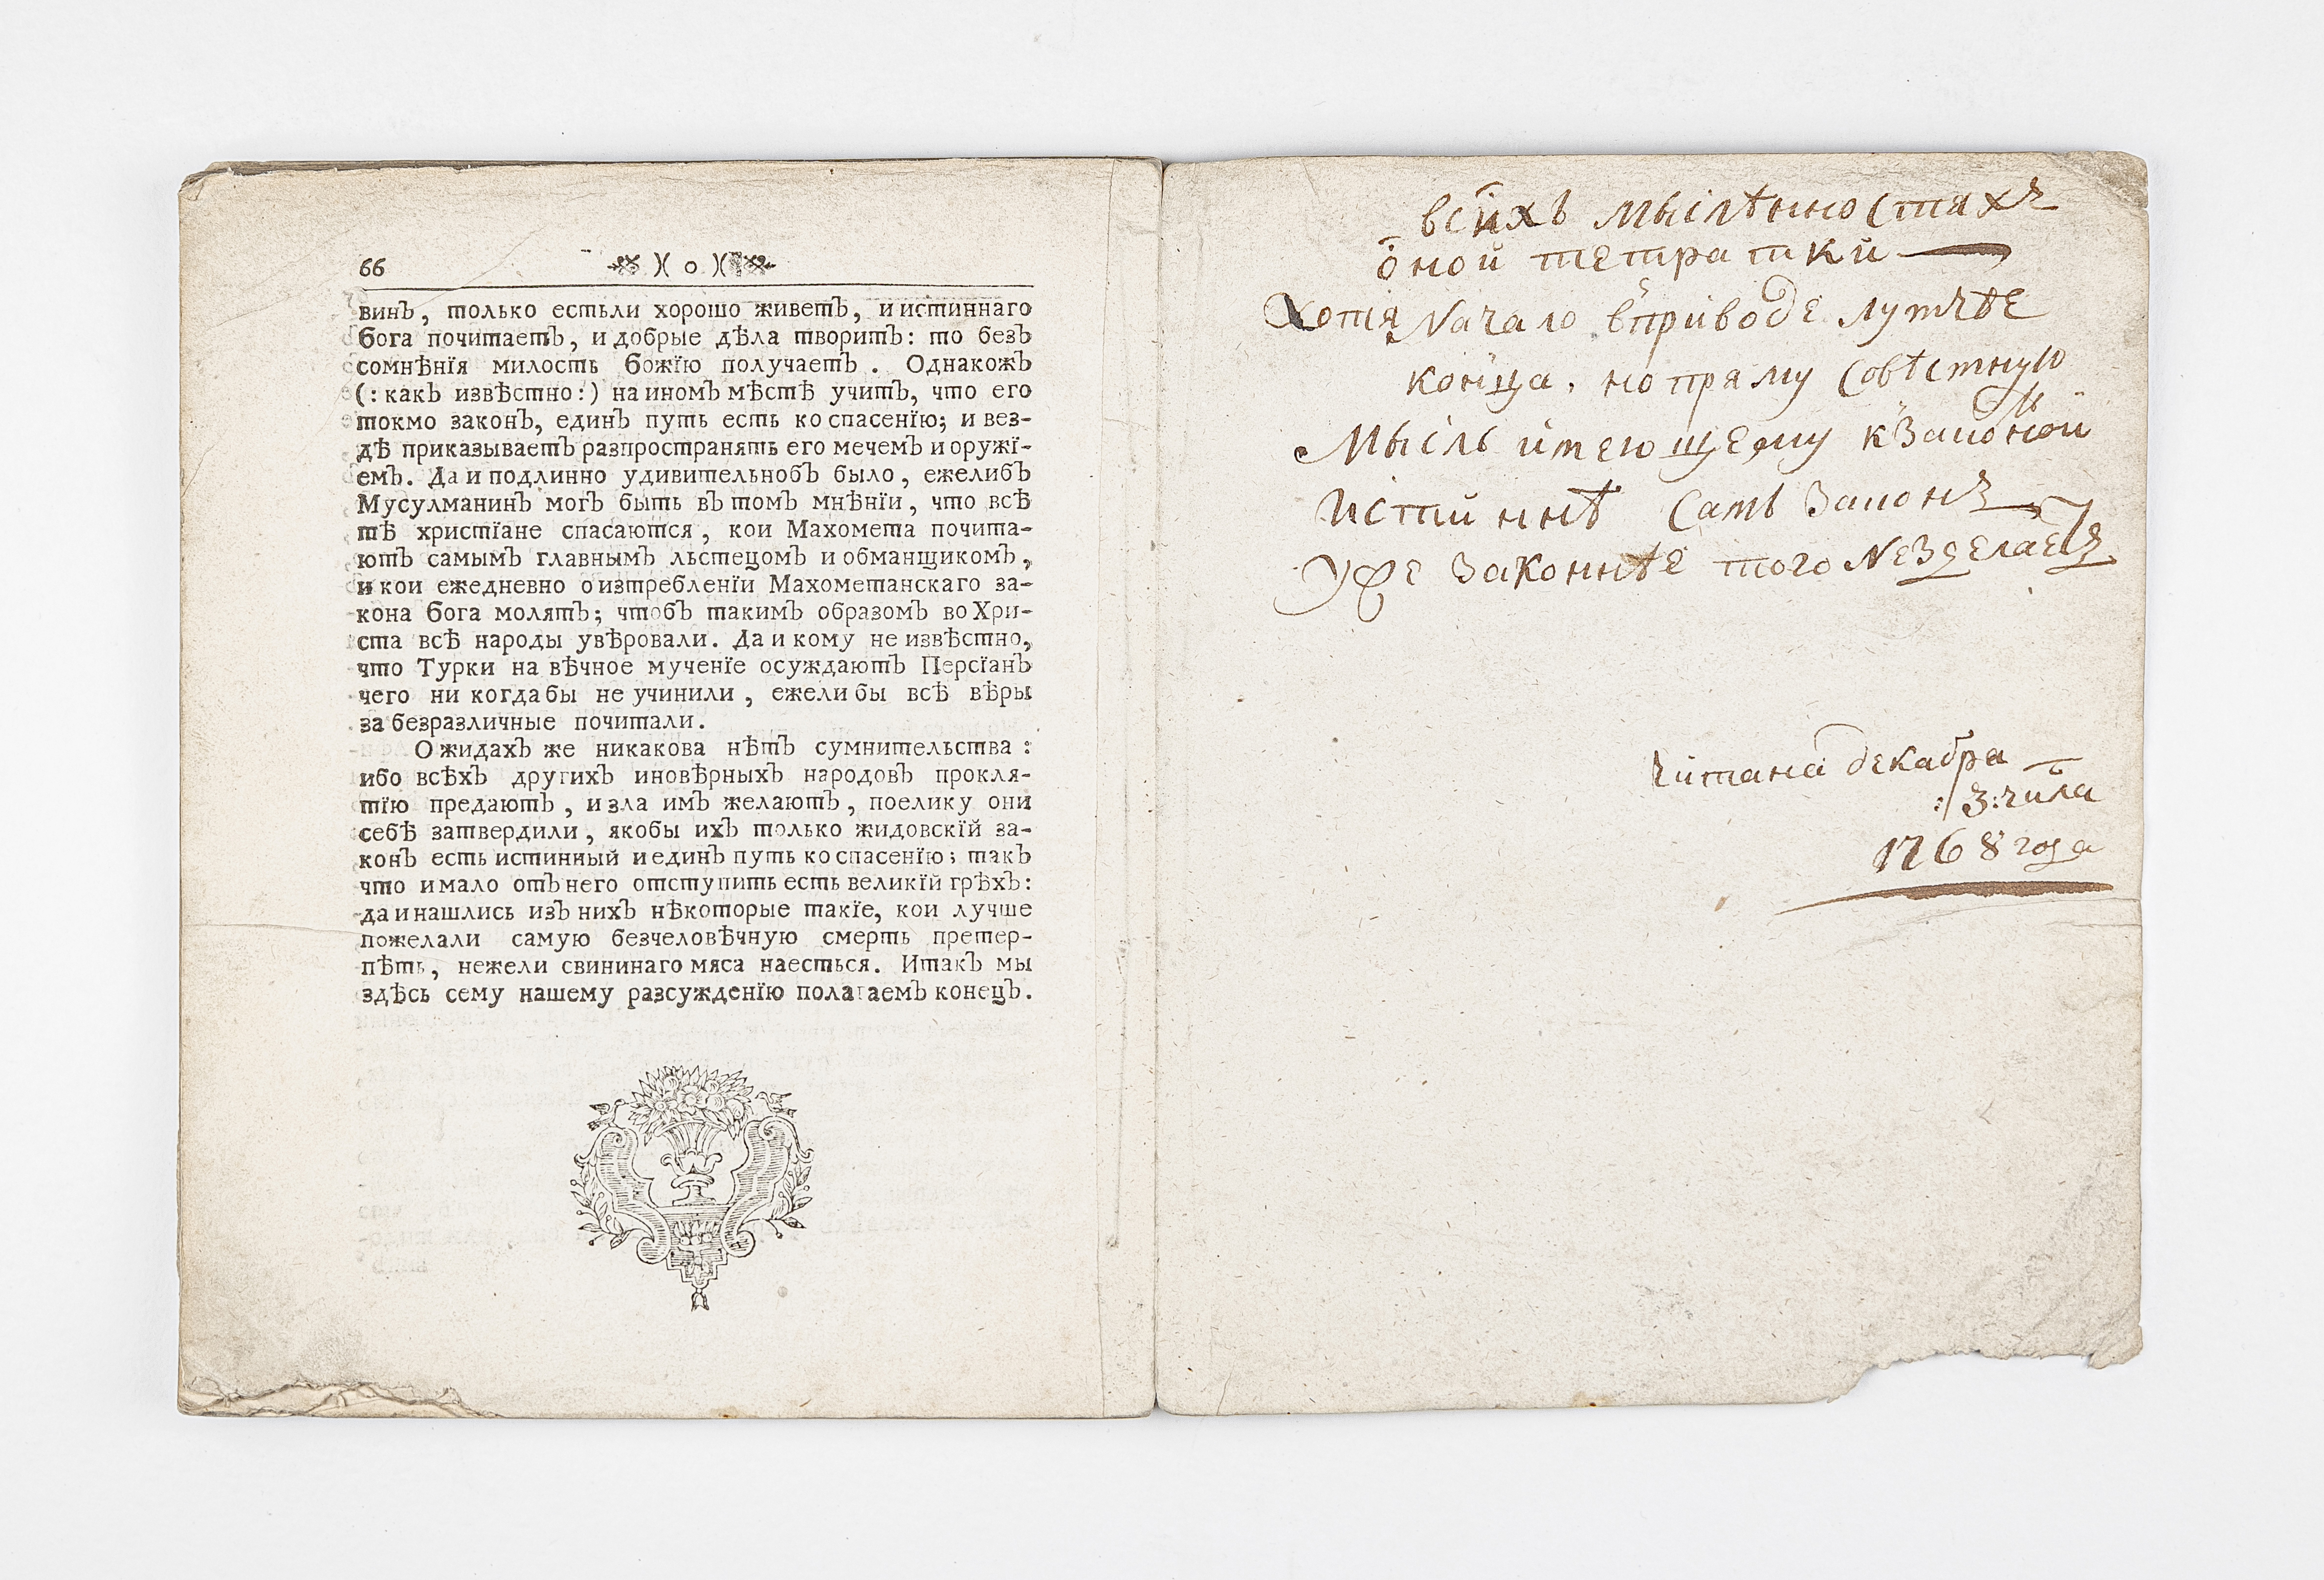 66 )( о )(
винъ, только естьли хорошо живетъ, и истиннаго
бога почитаетъ, и добрые дѣла творитъ: то безъ
сомнѣнїя милость божїю получаетъ. Однакожъ
(: какъ извѣстно:) на иномъ мѣстѣ учитъ, что его
токмо законъ, единъ путь есть ко спасенїю; и вез-
дѣ приказываетъ разпространять его мечемъ и оружї-
емъ. Да и подлинно удивительнобъ было, ежелибъ
Мусулманинъ могъ быть въ томъ мнѣнїи, что всѣ
тѣ христїане спасаются, кои Махомета почита-
ютъ самымъ главнымъ льстецомъ и обманщикомъ,
и кои ежедневно о изтребленїи Махометанскаго за-
кона бога молятъ; чтобъ такимъ образомъ во Хри-
ста всѣ народы увѣровали. Да и кому не извѣстно,
что Турки на вѣчное мученїе осуждаютъ Персїанъ
чего ни когда бы не учинили, ежели бы всѣ вѣры
за безразличные почитали.
О жидахъ же никакова нѣтъ сумнительства:
ибо всѣхъ другихъ иновѣрныхъ народовъ прокля-
тїю предаютъ, и зла имъ желаютъ, поелику они
себѣ затвердили, якобы ихъ только жидовскїй за-
конъ есть истинный и единъ путь ко спасенїю; такъ
что и мало отъ него отступить есть великїй грѣхъ:
да и нашлись изъ нихъ нѣкоторые такїе, кои лучше
пожелали самую безчеловѣчную смерть претер-
пѣть, нежели свининаго мяса наесться. Итакъ мы
здѣсь сему нашему разсужденїю полагаемъ конецъ.
мысл�ѣнностяхъ
оной тетратки
Хотя Начало вприводе лутчѣе
конца, но пряму совѣстную
Мысль имеющему
Истиннѣ самъ законъ
Уже законнѣе того Незделаетъ
читана декабра
3: числа
1768 года